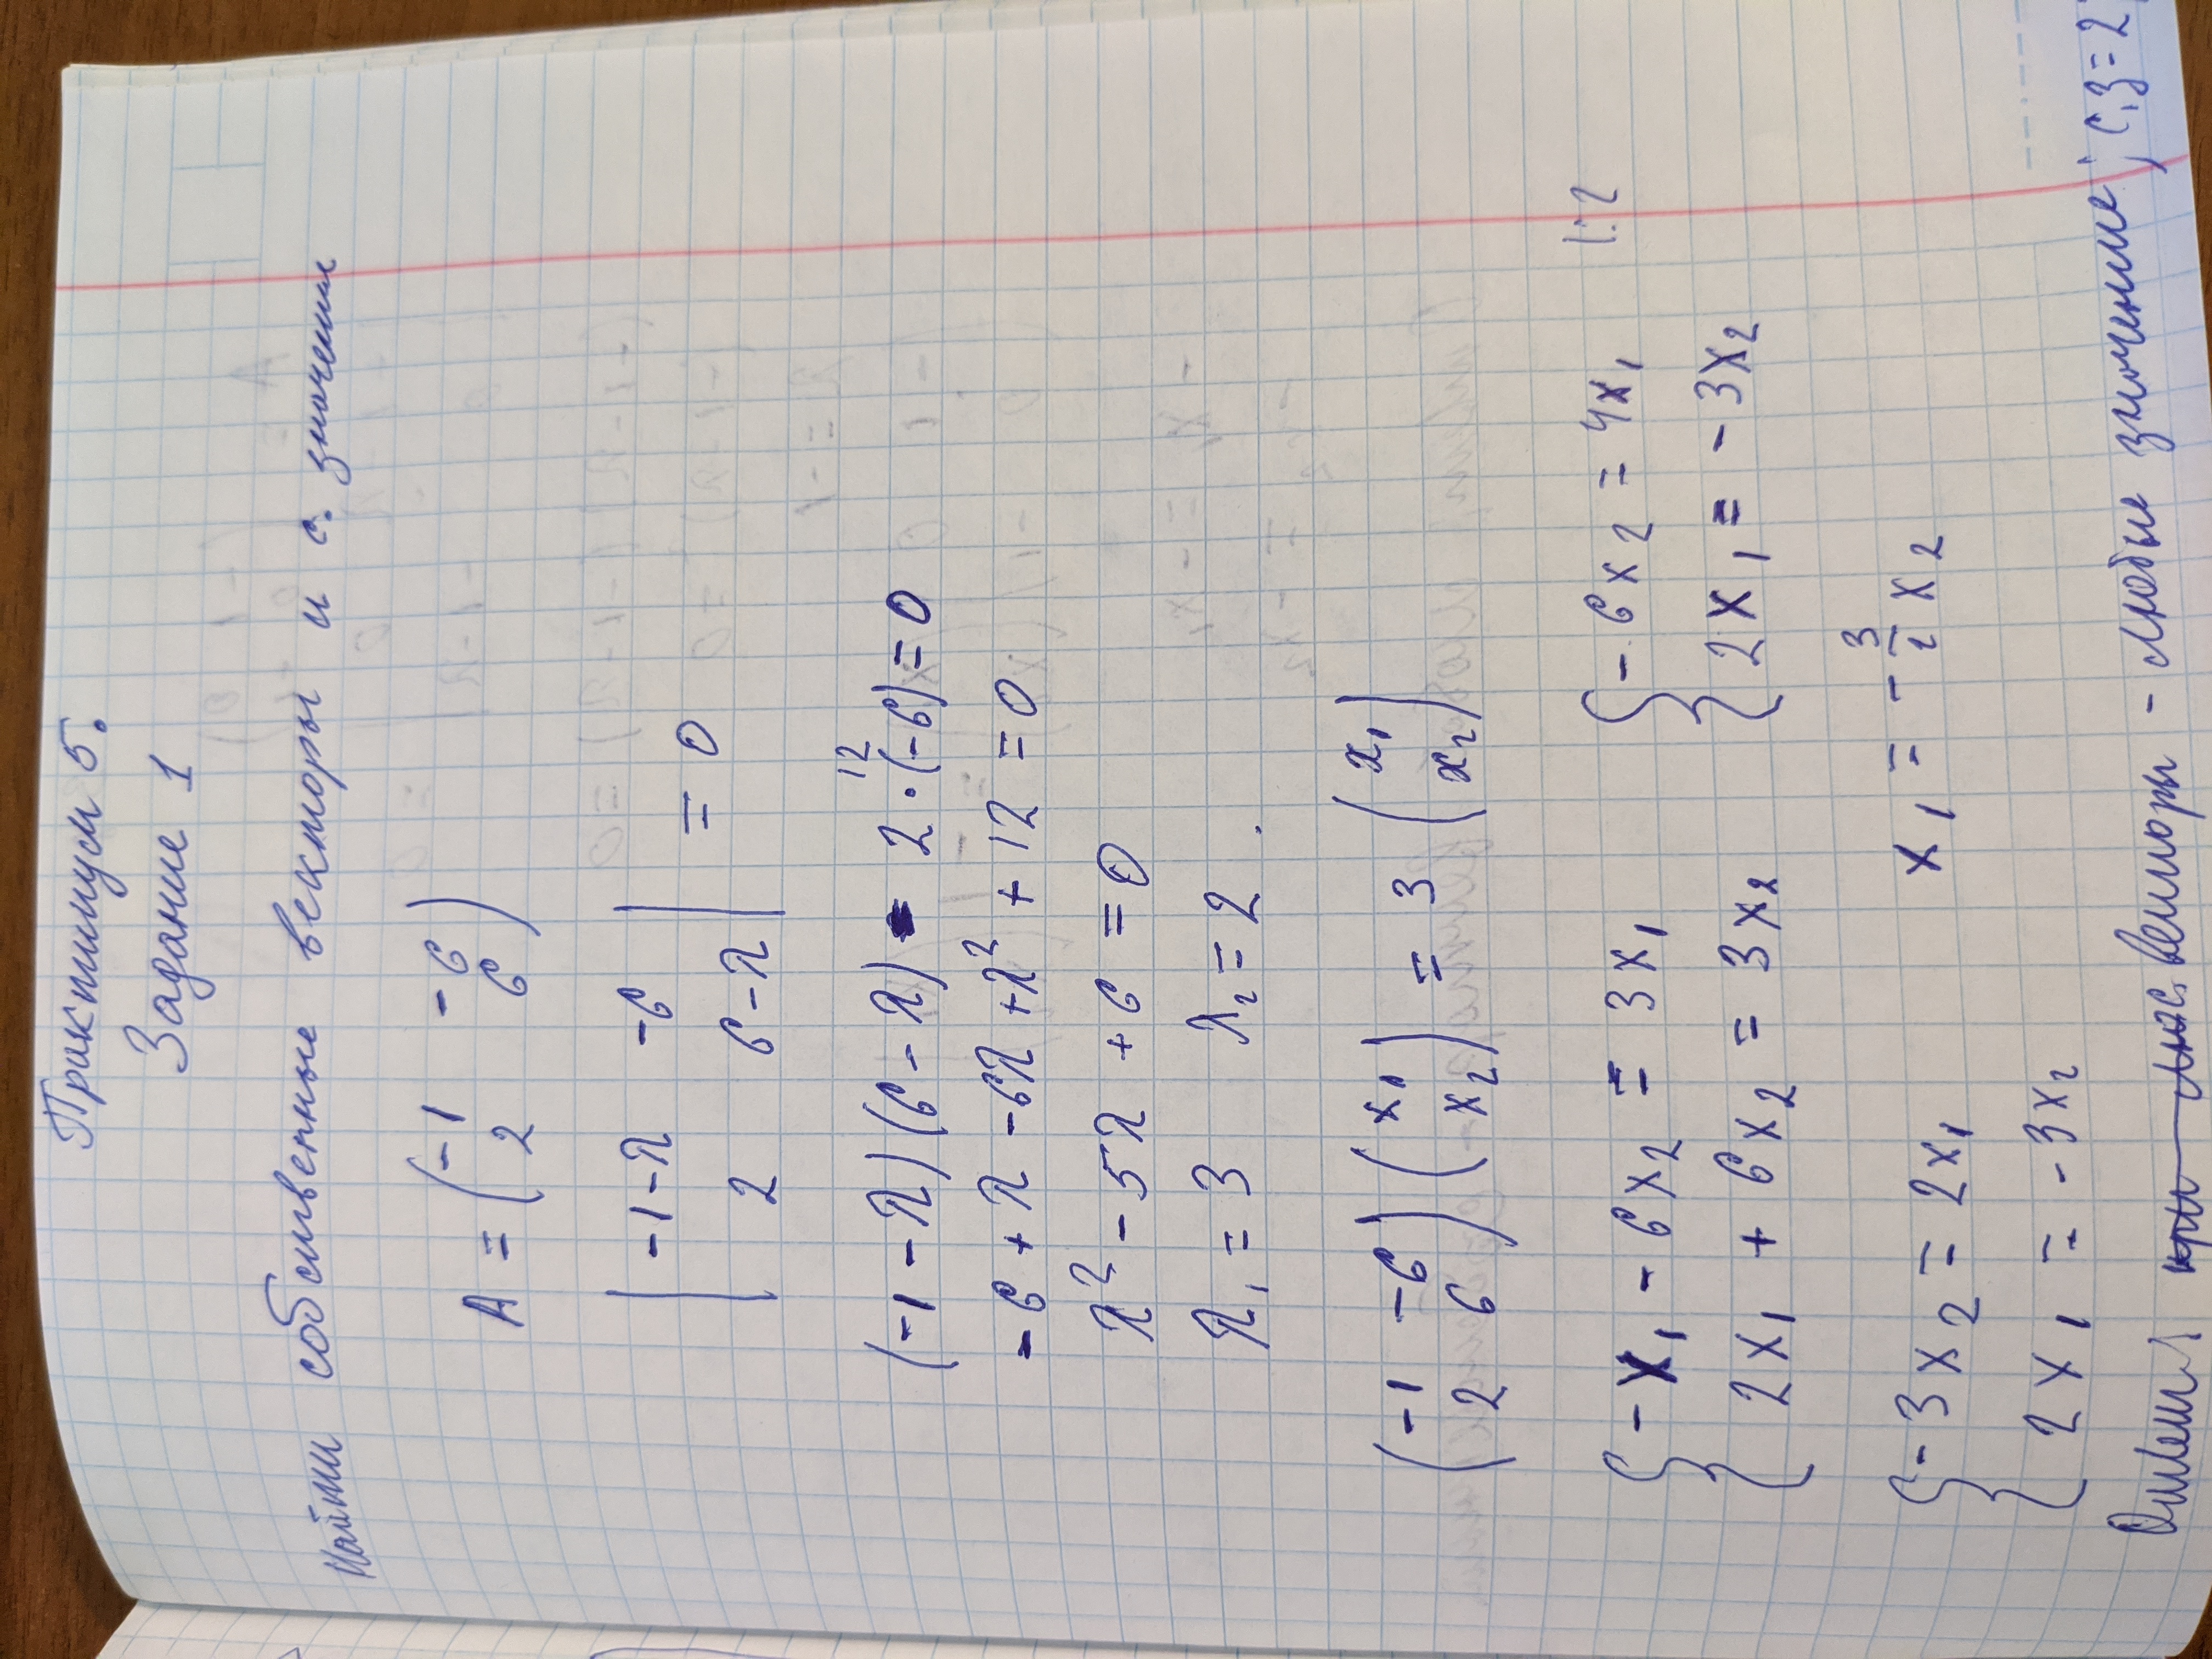 Практикум 5.
Задание 1
Найти собственные векторы и с. значения
A = (-1 -6
2 6)
|-1-λ -6
2 6-λ| = 0
12
(-1-λ)(6-λ) - 2·(-6) = 0
-6 + λ - 6λ + λ² + 12 = 0
λ² - 5λ + 6 = 0
λ₁ = 3 λ₂ = 2.
(-1 -6
2 6) (x₁
x₂) = 3 (x₁
x₂)
{-x₁ - 6x₂ = 3x₁
2x₁ + 6x₂ = 3x₂
{-6x₂ = 4x₁ |:2
2x₁ = -3x₂
{-3x₂ = 2x₁
2x₁ = -3x₂
x₁ = -3/2 x₂
Ответ: векторы - любые значение; с.з = 2;